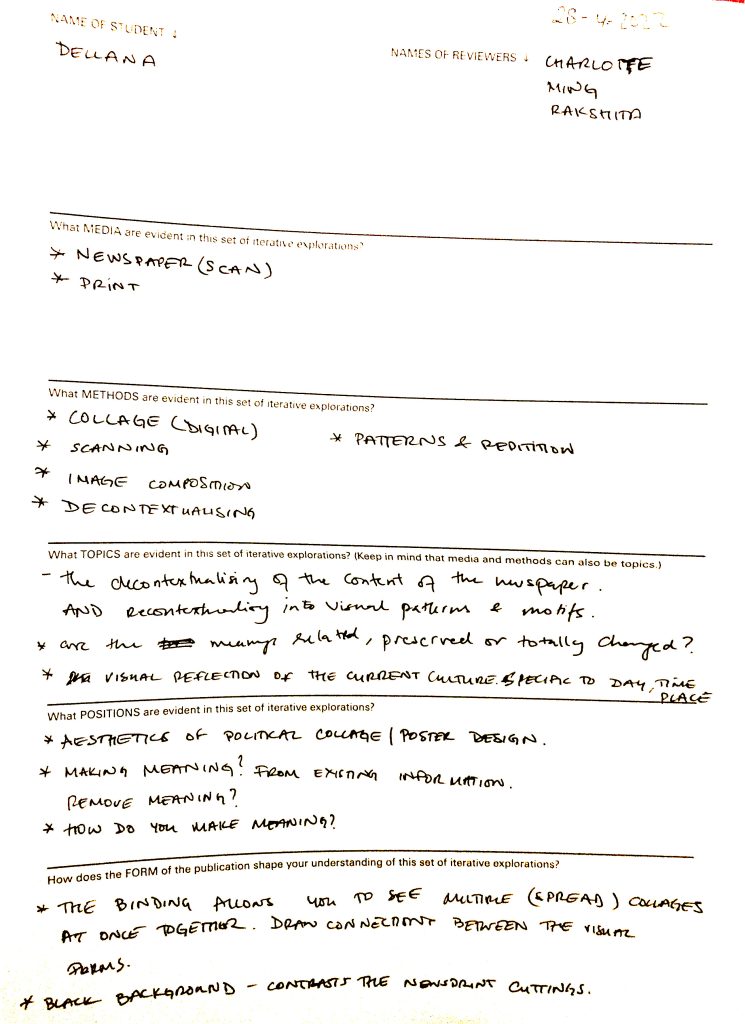 28-4-2022
NAME OF STUDENT ↓
DELLANA
NAMES OF REVIEWERS ↓
CHARLOTTE
MING
RAKSHITA
What MEDIA are evident in this set of iterative explorations?
* NEWSPAPER (SCAN)
* PRINT
What METHODS are evident in this set of iterative explorations?
* COLLAGE (DIGITAL)
* SCANNING
* IMAGE COMPOSITION
* DECONTEXTUALISING
* PATTERNS & REPITITION
What TOPICS are evident in this set of iterative explorations? (Keep in mind that media and methods can also be topics.)
- the decontextualising of the content of the newspaper.
AND recontextualing into visual patterns & motifs.
* are the meanings related, preserved or totally changed?
* VISUAL REFLECTION OF THE CURRENT CULTURE. SPECIFIC TO DAY, TIME
PLACE
What POSITIONS are evident in this set of iterative explorations?
* AESTHETICS OF POLITICAL COLLAGE / POSTER DESIGN.
* MAKING MEANING? FROM EXISTING INFORMATION.
REMOVE MEANING?
* HOW DO YOU MAKE MEANING?
How does the FORM of the publication shape your understanding of this set of iterative explorations?
* THE BINDING ALLOWS YOU TO SEE MULTIPLE (SPREAD) COLLAGES
AT ONCE TOGETHER. DRAW CONNECTIONS BETWEEN THE VISUAL
FORMS.
* BLACK BACKGROUND - CONTRASTS THE NEWSPRINT CUTTINGS.